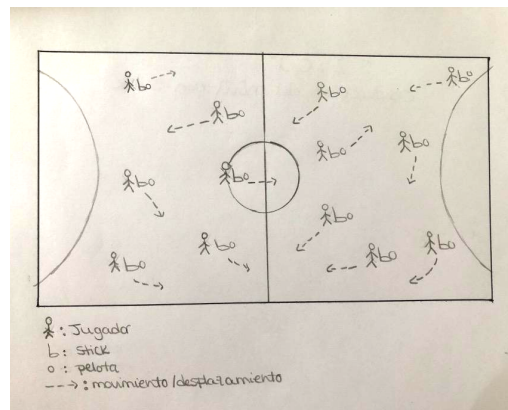 : Jugador
b: stick
o: pelota
---> : movimiento/desplazamiento